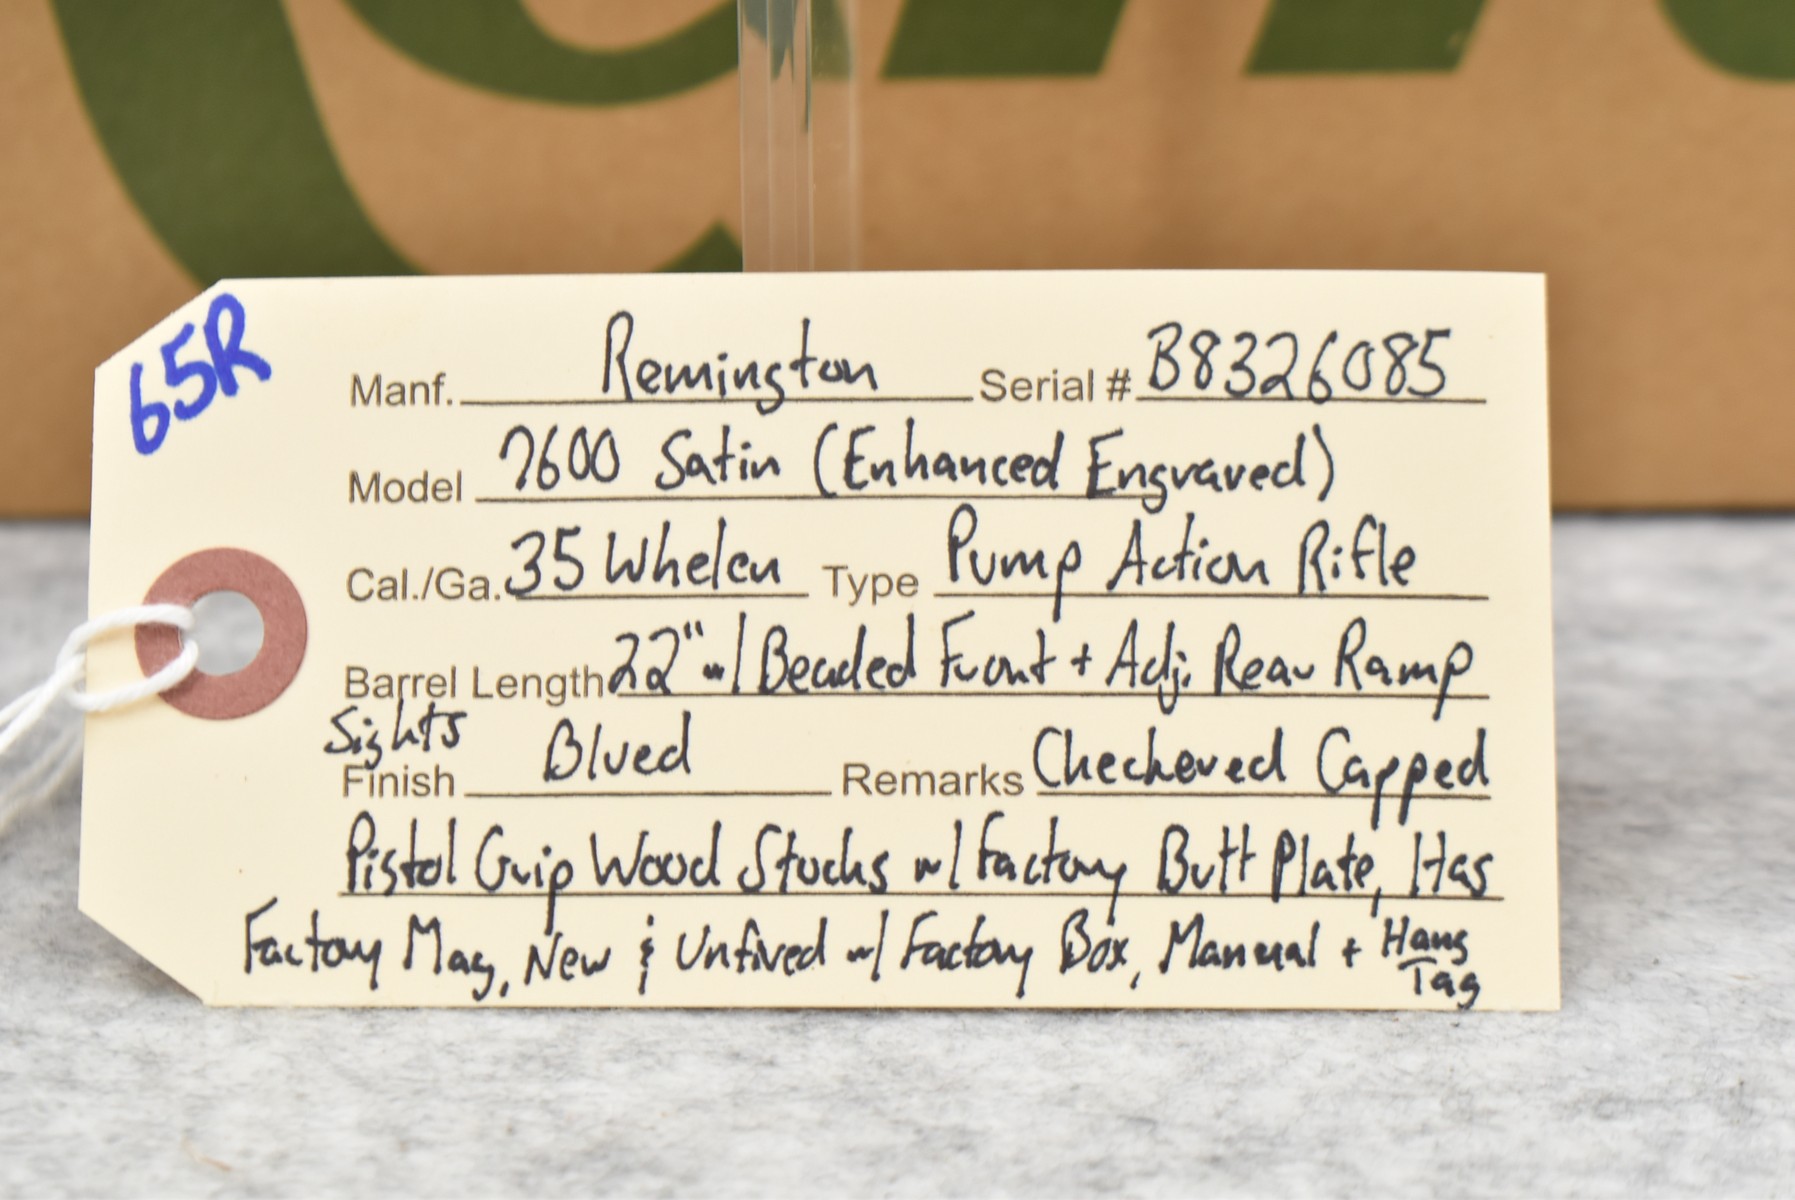 65R
Manf. Remington Serial # B8326085
Model 7600 Satin (Enhanced Engraved)
Cal./Ga. 35 Whelen Type Pump Action Rifle
Barrel Length 22" w/ Beaded Front + Adj. Rear Ramp
Sights
Finish Blued Remarks Checkered Capped
Pistol Grip Wood Stocks w/ Factory Butt Plate, Has
Factory Mag, New & Unfired w/ Factory Box, Manual + Hang
Tag